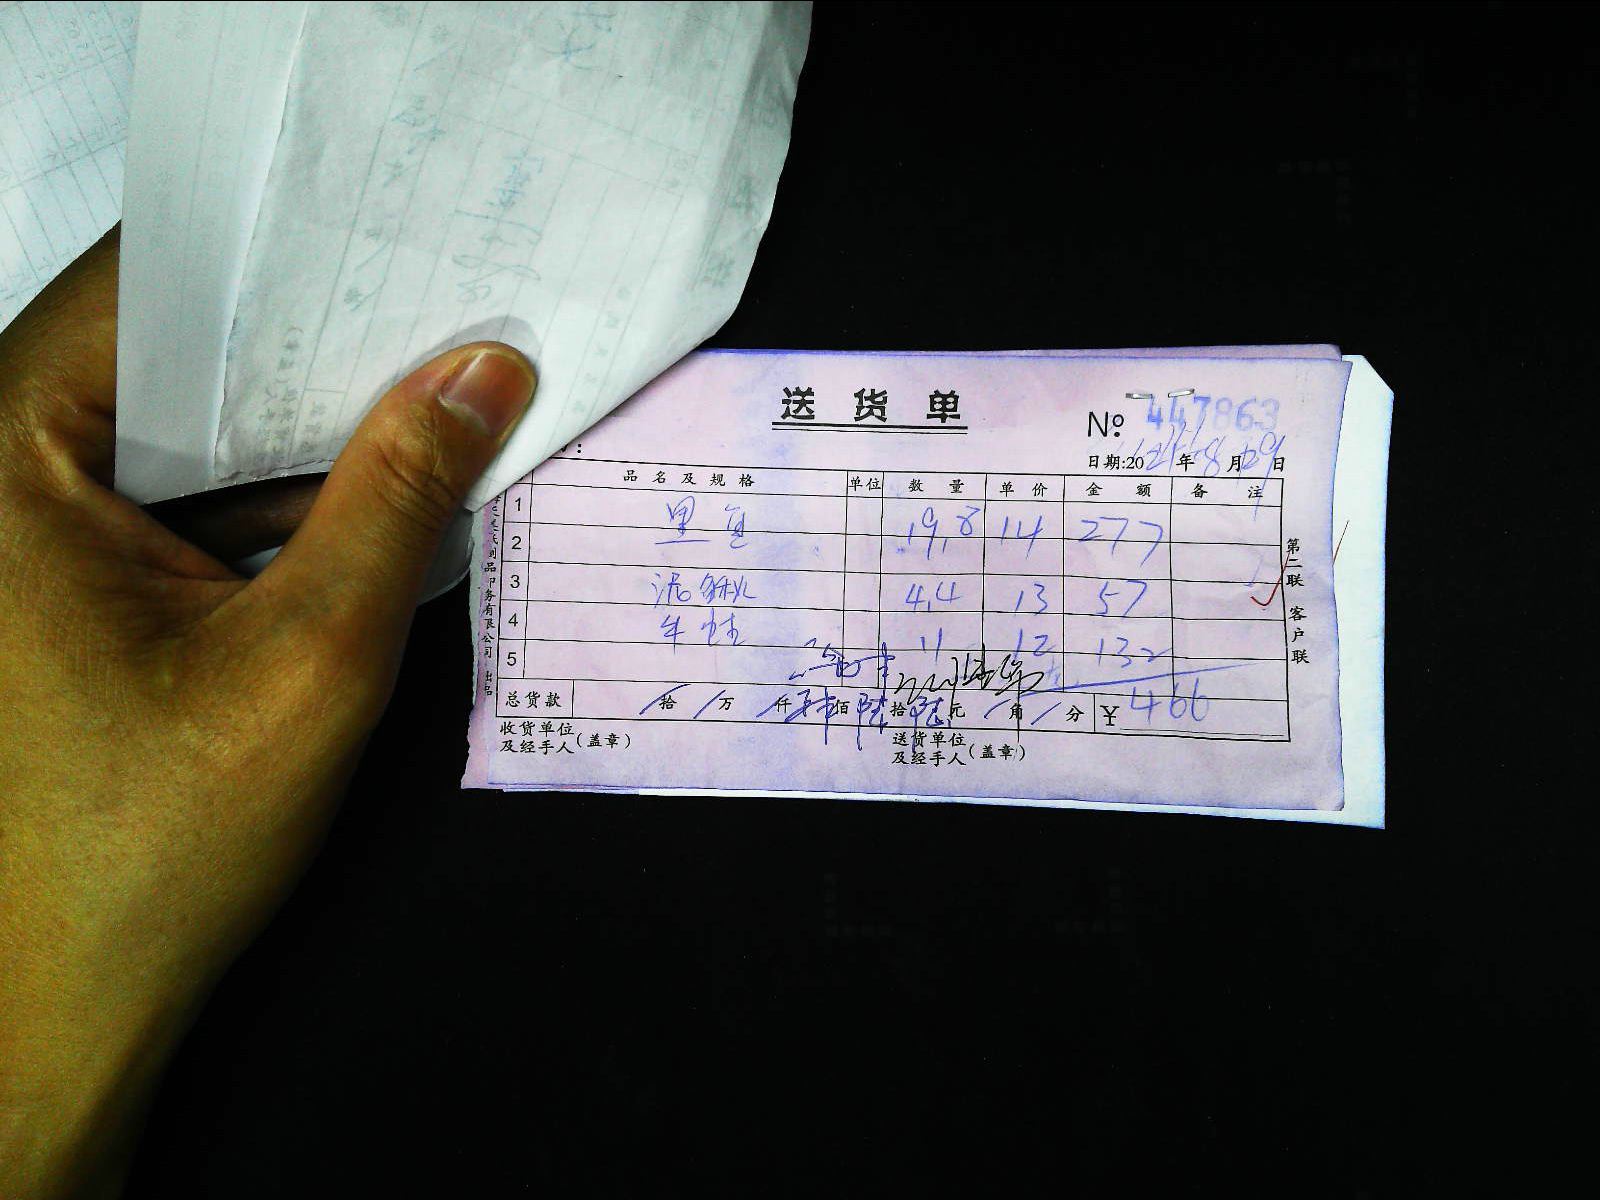 送货单
№ 447863
日期:20 年 8 月 29 日
品名及规格 单位 数量 单价 金额 备注
1 黑鱼 19.8 14 277
2
3 泥鳅 4.4 13 57
4 牛蛙 11 12 132
5
总货款 拾 万 仟 肆佰 陆拾 陆元 角 分 ¥ 466
收货单位及经手人(盖章)
送货单位及经手人(盖章)
第二联 客户联
品印务有限公司 出品